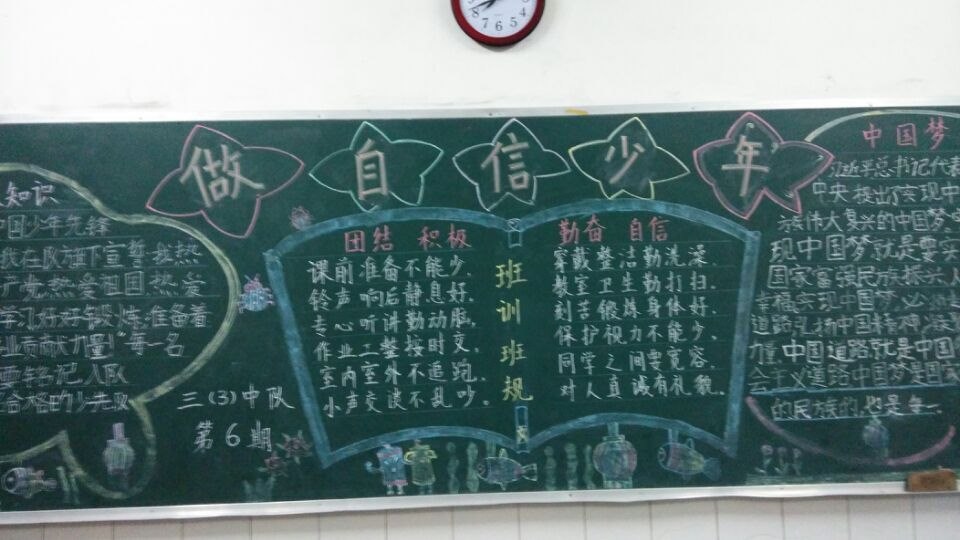 做自信少年
知识
国少年先锋
我在队旗下宣誓我热
党热爱祖国热爱
学习好好锻炼准备着
业贡献力量!"每一名
要牢记入队
合格的少先队
三(3)中队
第6期
团结 积极
课前准备不能少.
铃声响后静息好.
专心听讲勤动脑.
作业工整按时交.
室内室外不追跑.
小声交谈不乱吵.
班训班规
勤奋 自信
穿戴整洁勤洗澡
教室卫生勤打扫.
刻苦锻炼身体好.
保护视力不能少.
同学之间要宽容.
对人真诚有礼貌.
中国梦
习近平总书记代表
中央提出了实现中
族伟大复兴的中国梦
现中国梦就是要实
国家富强民族振兴人
幸福实现中国梦必须
道路弘扬中国精神凝
力量中国道路就是中国
会主义道路中国梦是国家
的民族的,也是每一
8 7 6 5 4